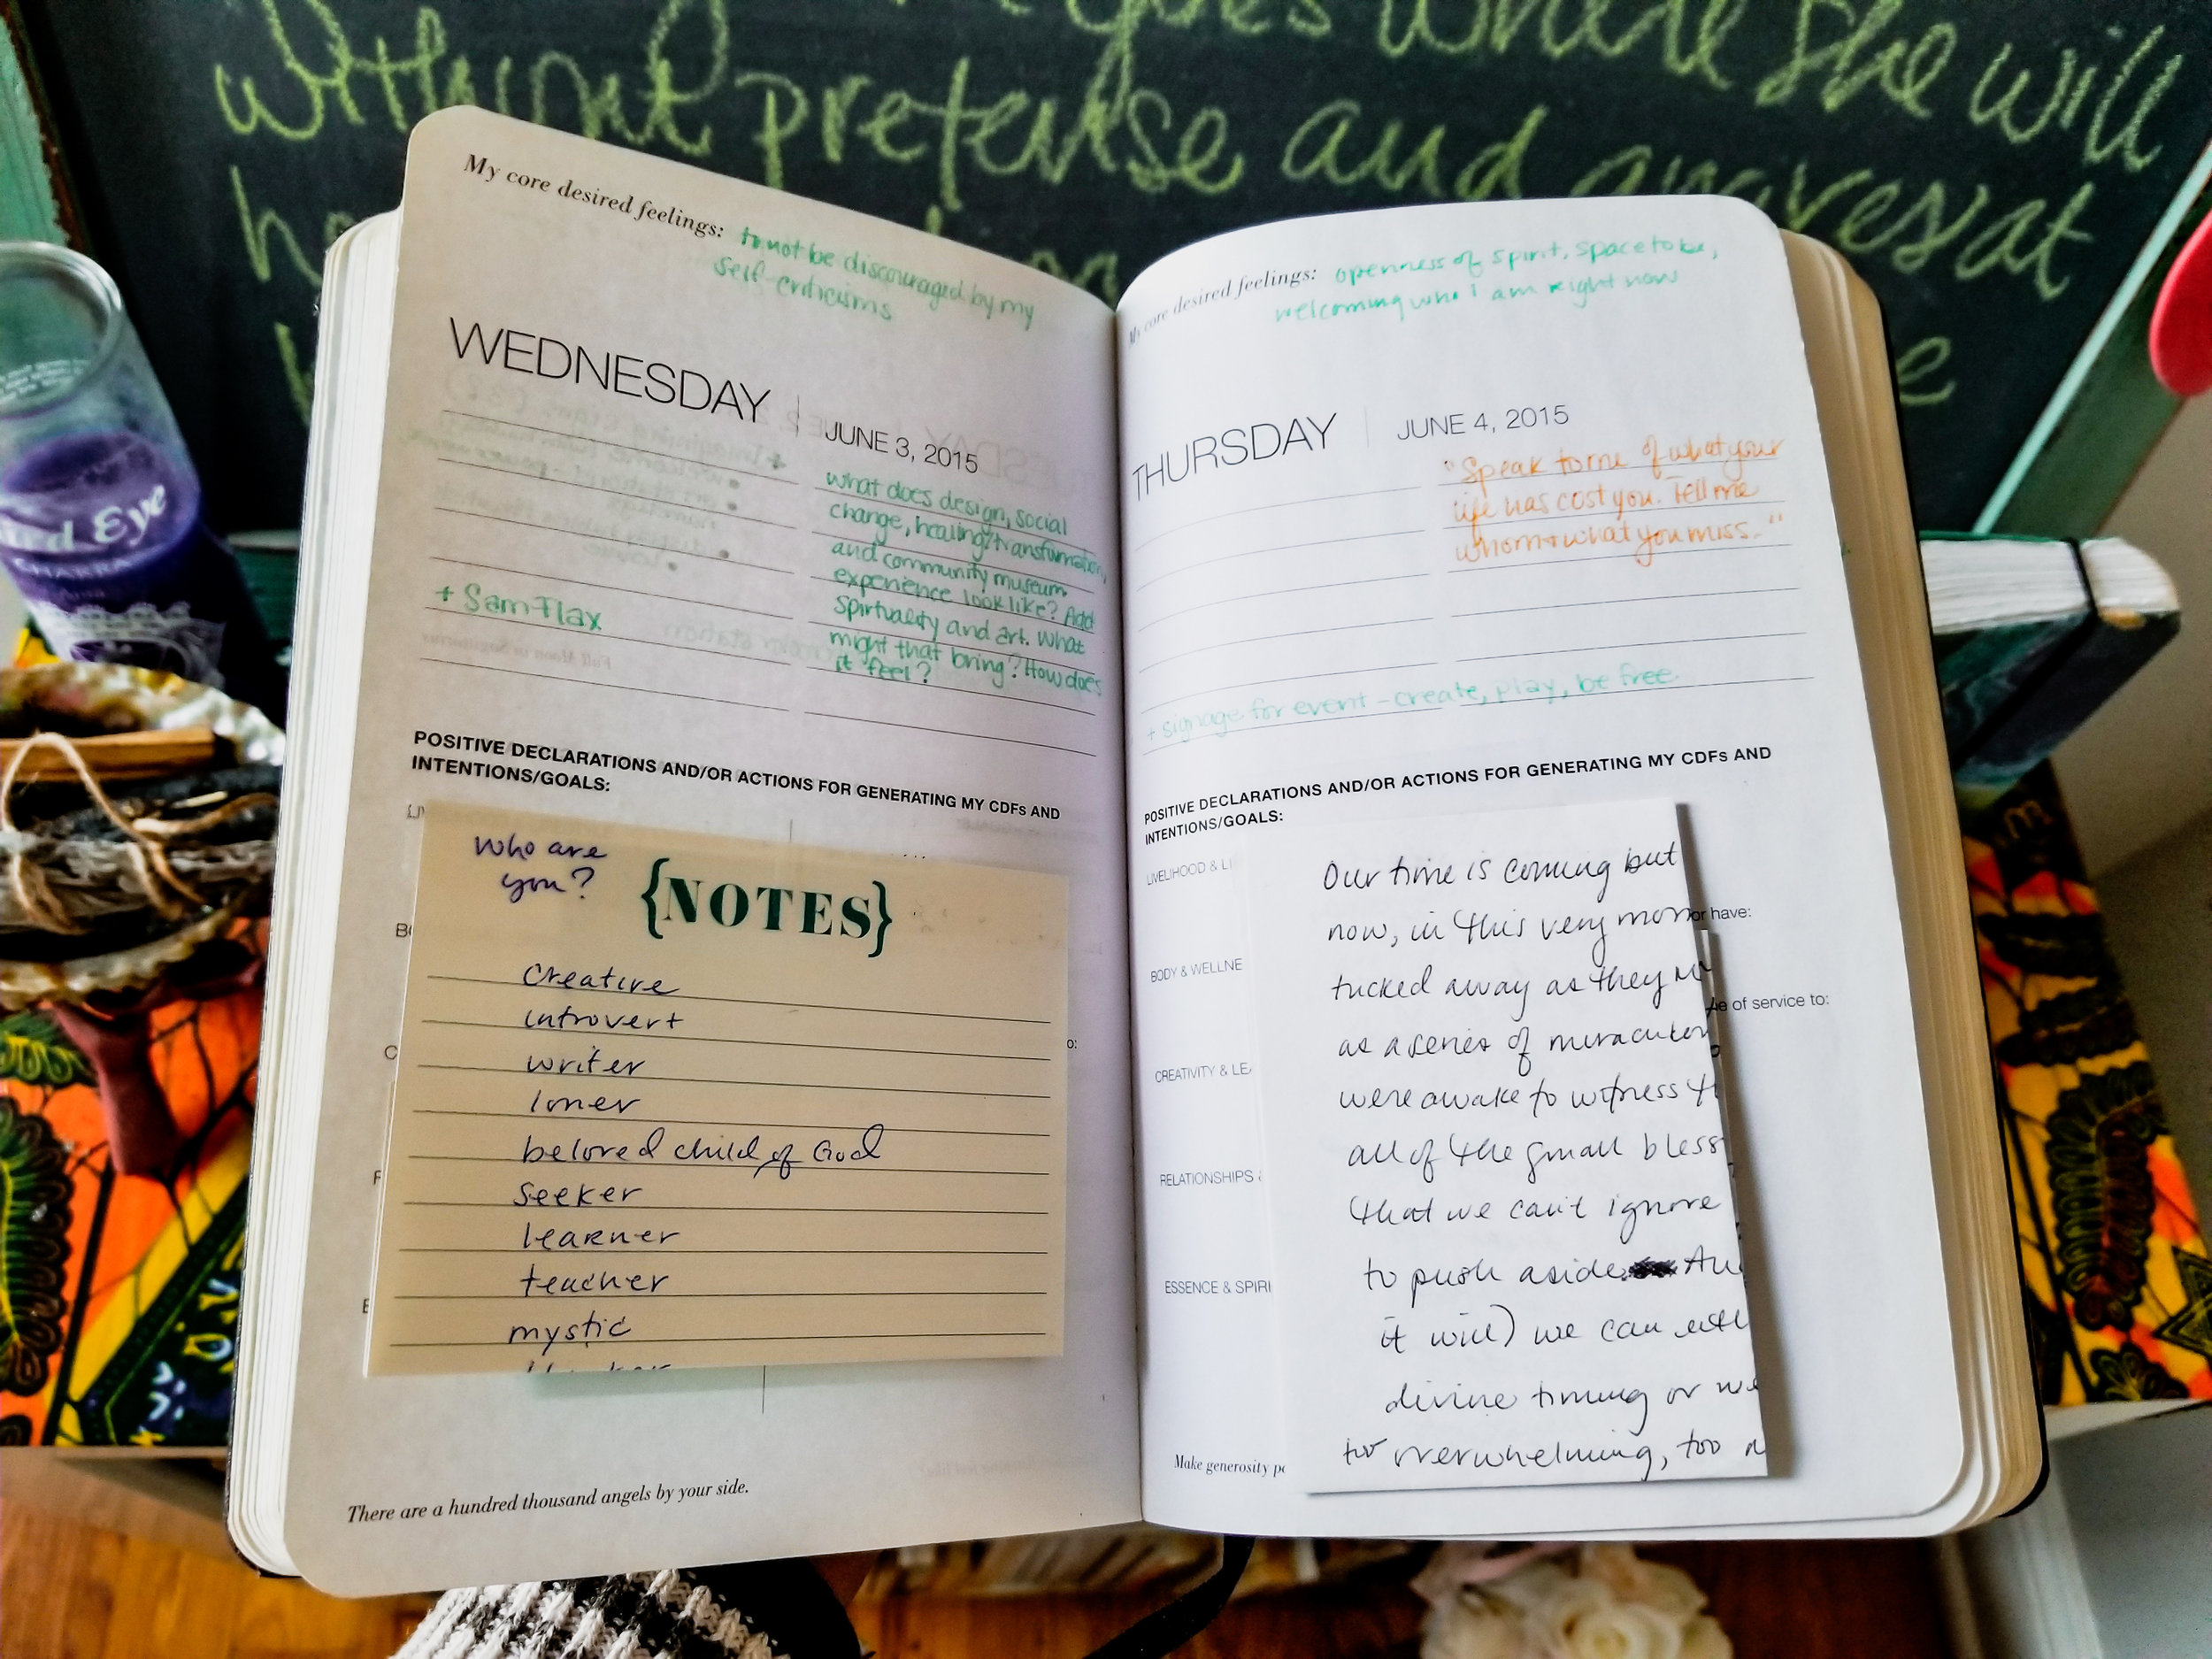 goes where she will
without pretense and
My core desired feelings: to not be discouraged by my
self-criticisms
WEDNESDAY | JUNE 3, 2015
what does design, social
change, healing/transformation,
and community museum
experience look like? Add
spirtuality and art. What
might that bring? How does
it feel?
+ Sam Flax
POSITIVE DECLARATIONS AND/OR ACTIONS FOR GENERATING MY CDFs AND
INTENTIONS/GOALS:
who are
you?
{NOTES}
creative
introvert
writer
loner
beloved child of God
seeker
learner
teacher
mystic
There are a hundred thousand angels by your side.
My core desired feelings: openness of spirit, space to be,
welcoming who I am right now
THURSDAY | JUNE 4, 2015
"Speak to me of what your
life has cost you. Tell me
whom + what you miss."
+ signage for event - create, play, be free.
POSITIVE DECLARATIONS AND/OR ACTIONS FOR GENERATING MY CDFs AND
INTENTIONS/GOALS:
LIVELIHOOD & LI
or have:
BODY & WELLNE
of service to:
CREATIVITY & LE
RELATIONSHIPS &
ESSENCE & SPIRI
Our time is coming but
now, in this very mom
tucked away as they
as a series of
were awake to witness
all of the small bless
that we can't ignore
to push aside.
it will) we can
divine timing or we
too overwhelming, too
Make generosity
Eye
CHAKRA